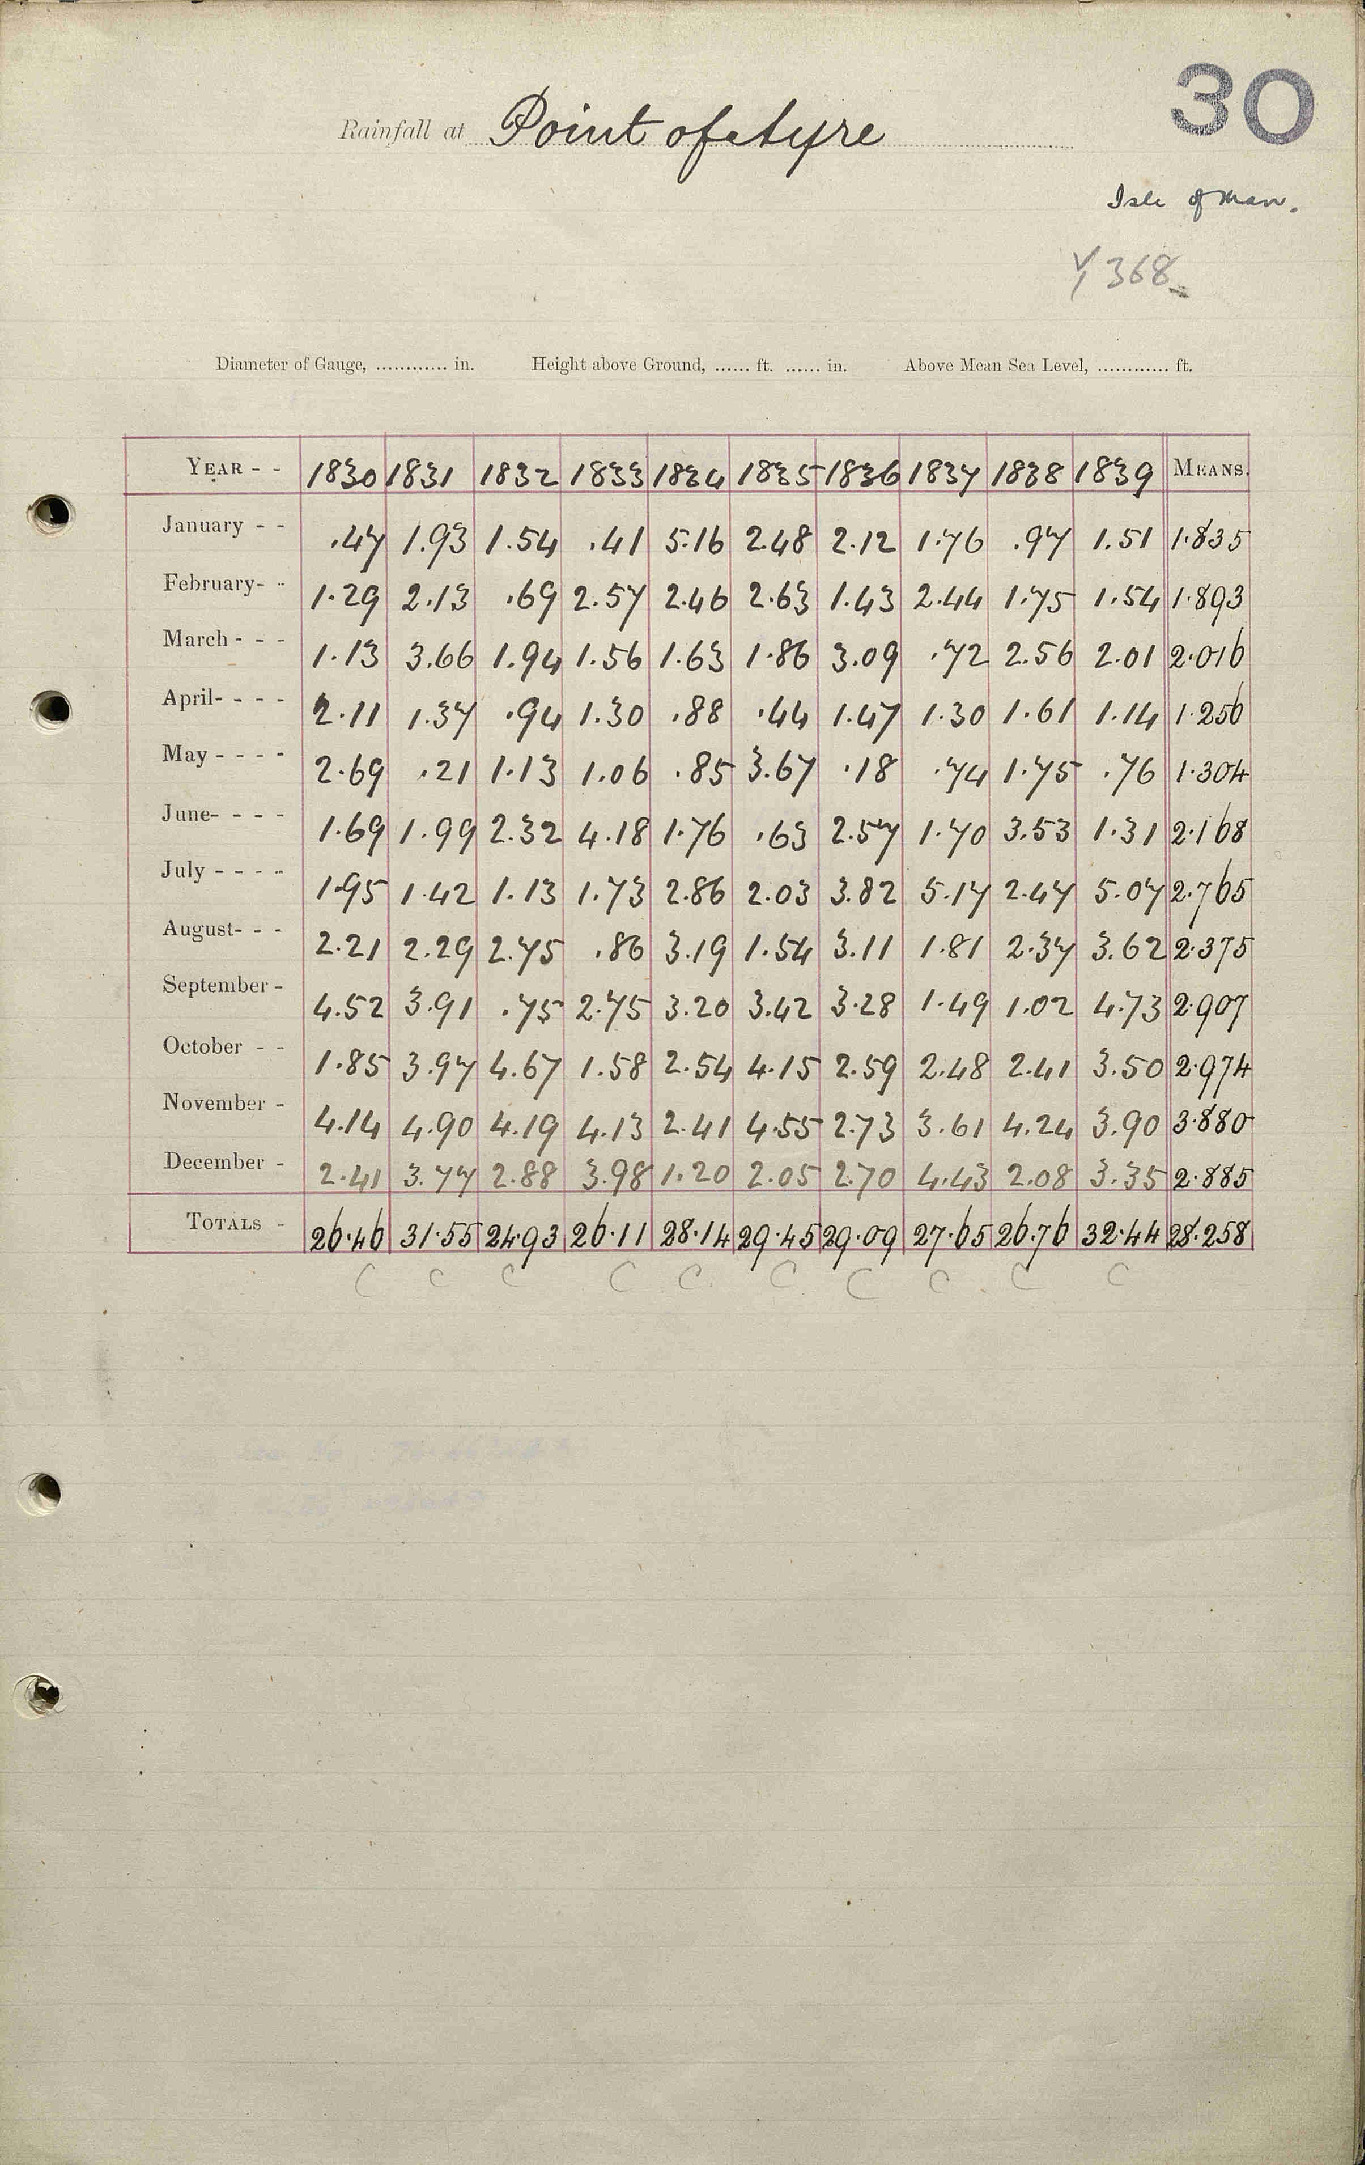 30
Rainfall at Point of Ayre
Isle of Man.
368
Diameter of Gauge, ............ in. Height above Ground, ...... ft. ...... in. Above Mean Sea Level, ............ ft.
YEAR - - 1830 1831 1832 1833 1834 1835 1836 1837 1838 1839 MEANS.
January - - .47 1.93 1.54 .41 5.16 2.48 2.12 1.76 .97 1.51 1.835
February- - 1.29 2.13 .69 2.57 2.46 2.63 1.43 2.44 1.75 1.54 1.893
March - - - 1.13 3.66 1.94 1.56 1.63 1.86 3.09 .72 2.56 2.01 2.016
April- - - - 2.11 1.37 .94 1.30 .88 .44 1.47 1.30 1.61 1.14 1.256
May - - - - 2.69 .21 1.13 1.06 .85 3.67 .18 .74 1.75 .76 1.304
June- - - - 1.69 1.99 2.32 4.18 1.76 .63 2.57 1.70 3.53 1.31 2.168
July - - - - 1.95 1.42 1.13 1.73 2.86 2.03 3.82 5.17 2.47 5.07 2.765
August- - - 2.21 2.29 2.75 .86 3.19 1.54 3.11 1.81 2.37 3.62 2.375
September - 4.52 3.91 .75 2.75 3.20 3.42 3.28 1.49 1.02 4.73 2.907
October - - 1.85 3.97 4.67 1.58 2.54 4.15 2.59 2.48 2.41 3.50 2.974
November - 4.14 4.90 4.19 4.13 2.41 4.55 2.73 3.61 4.24 3.90 3.880
December - 2.41 3.77 2.88 3.98 1.20 2.05 2.70 4.43 2.08 3.35 2.885
TOTALS - 26.46 31.55 24.93 26.11 28.14 29.45 29.09 27.65 26.76 32.44 28.258
C C C C C C C C C C